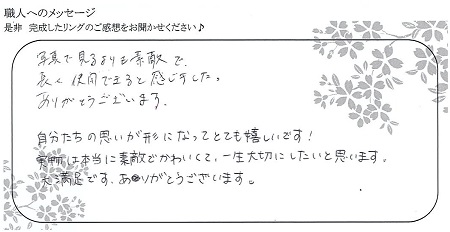 職人へのメッセージ
是非 完成したリングのご感想をお聞かせください♪
写真で見るよりも素敵で、
長く使用できると感じました。
ありがとうございます。
自分たちの思いが形になってとても嬉しいです！
実物は本当に素敵でかわいくて、一生大切にしたいと思います。
大満足です、ありがとうございます。